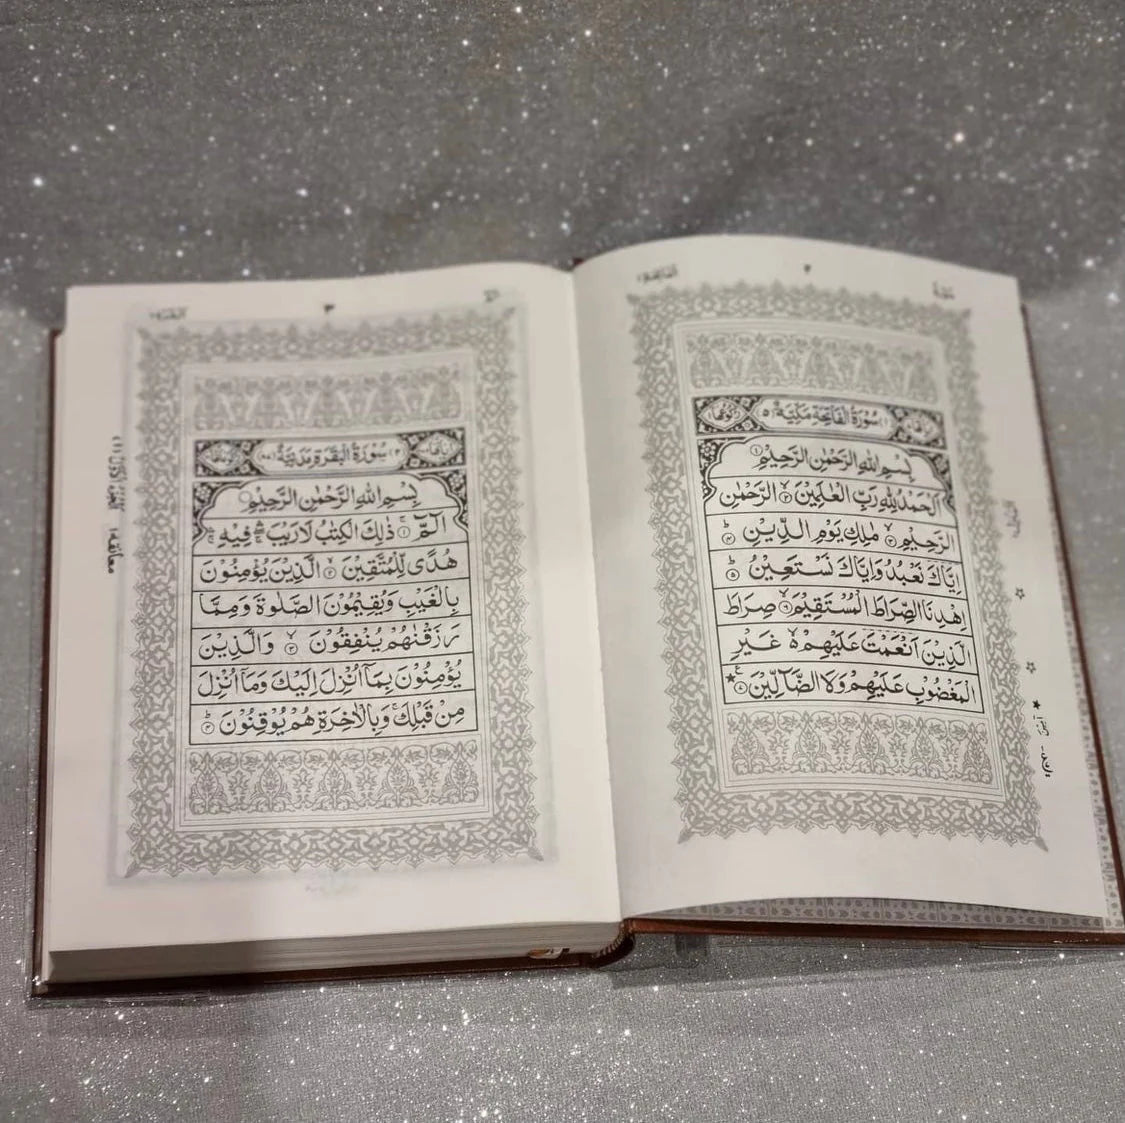 ٢
سُوْرَةُ الْفَاتِحَةِ مَكِّيَّةٌ
بِسْمِ اللّٰهِ الرَّحْمٰنِ الرَّحِيْمِ ۝١
اَلْحَمْدُ لِلّٰهِ رَبِّ الْعٰلَمِيْنَ ۝٢ الرَّحْمٰنِ
الرَّحِيْمِ ۝٣ مٰلِكِ يَوْمِ الدِّيْنِ ۝٤
اِيَّاكَ نَعْبُدُ وَاِيَّاكَ نَسْتَعِيْنُ ۝٥
اِهْدِنَا الصِّرَاطَ الْمُسْتَقِيْمَ ۝٦ صِرَاطَ
الَّذِيْنَ اَنْعَمْتَ عَلَيْهِمْ ۙ۬ غَيْرِ
الْمَغْضُوْبِ عَلَيْهِمْ وَلَا الضَّآلِّيْنَ
٣
سُوْرَةُ الْبَقَرَةِ مَدَنِيَّةٌ
بِسْمِ اللّٰهِ الرَّحْمٰنِ الرَّحِيْمِ
الٓمّٓ ۝١ ذٰلِكَ الْكِتٰبُ لَا رَيْبَ ۛ فِيْهِ ۛ
هُدًى لِّلْمُتَّقِيْنَ ۝٢ الَّذِيْنَ يُؤْمِنُوْنَ
بِالْغَيْبِ وَيُقِيْمُوْنَ الصَّلٰوةَ وَمِمَّا
رَزَقْنٰهُمْ يُنْفِقُوْنَ ۝٣ وَالَّذِيْنَ
يُؤْمِنُوْنَ بِمَآ اُنْزِلَ اِلَيْكَ وَمَآ اُنْزِلَ
مِنْ قَبْلِكَ ۚ وَبِالْاٰخِرَةِ هُمْ يُوْقِنُوْنَ ۝٤